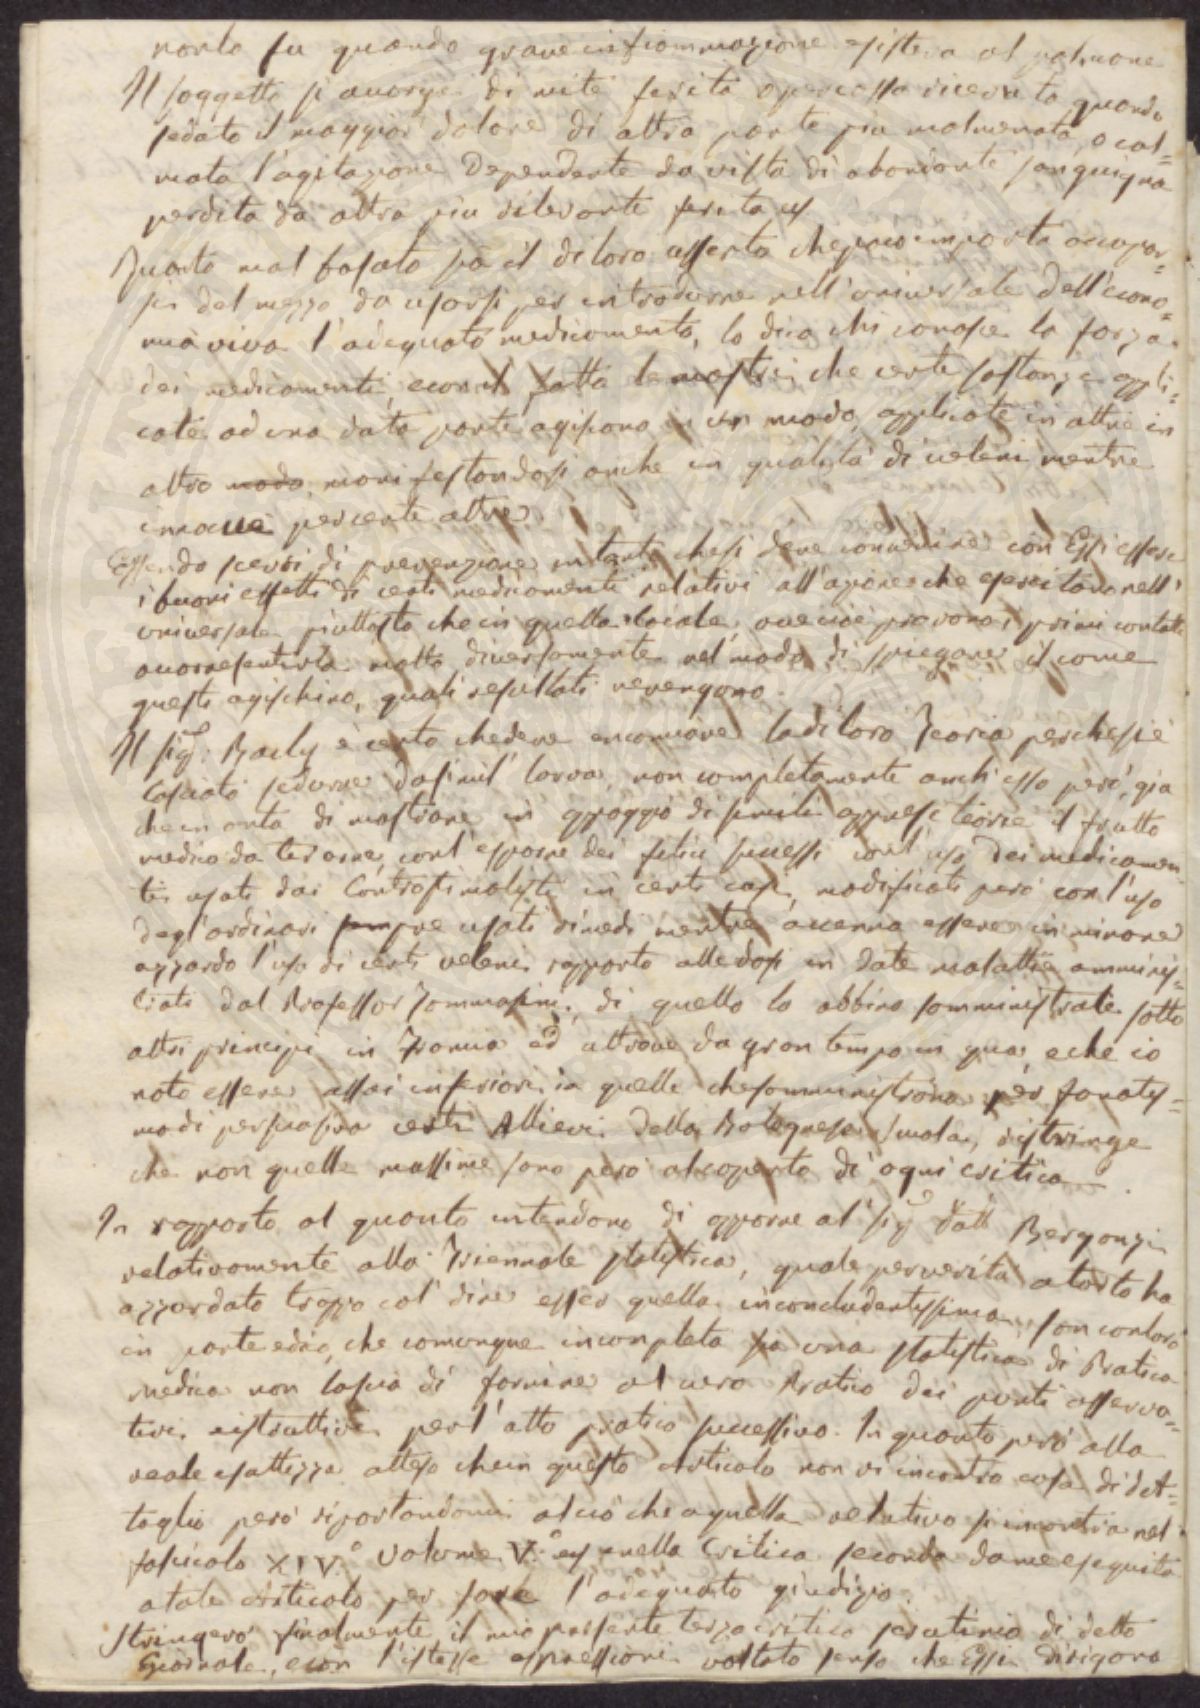 norlo fu quando grave infiammazione esisteva al polmone
Il soggetto si accorge di mite ferita o percossa ricevuta quando
sedato il maggior dolore di altra parte più malmenata, o cal=
mata l'agitazione dependente da vista di abondante sanguigna
perdita da altra più rilevante ferita
Quanto mal basato sia il di loro asserto che poco importa occupar=
si del mezzo da usarsi per introdurre nell'universale dell'econo=
mia viva l'adequato medicamento, lo dica chi conosce la forza
dei medicamenti, e con il fatto le mostri che certe sostanze appli=
cate ad una data parte agiscono in un modo, applicate in altre in
altro modo, manifestandosi anche in qualità di veleni mentre
innocue per certe altre.
Essendo scevri di prevenzione intanto che si deve convenire con Essi essere
i buoni effetti di certi medicamenti relativi all'azione che esercitano nell'
universale piuttosto che in quella locale, ove cioè provano i primi contatti
molto diversamente nel modo di spiegare il come
questi agischino, quali resultati ne vengono.
Il Sig: Bayly è certo che deve encomiare la di loro Teoria perche si è
lasciato sedurre da simil' larva, non completamente anch'esso però, gia
che in onta di mostrare in appoggio di simili teorie il frutto
medico da con l'esporre dei felici successi con l'uso dei medicamen
ti usati dai Controstimolisti in certi casi, modificati però con l'uso
degl'ordinari sempre usati rimedi mentre accenna essere in minore
azzardo l'uso di certi veleni rapporto alle dosi in date malattie amminis=
trati dal Professor Tommasini, di quello lo abbino somministrate sotto
altri principi in Francia ed altrove da gran tempo in qua, e che io
noto essere assai inferiori a quelle che somministrano per fanatis=
mo di persuasiva certi Allievi della Bolognese scuola, stringe
che non quelle massime sono però al coperto di ogni critica.
In rapporto al quanto intendono di apporre al Sig Dott Bergonzi
relativamente alla Triennale statistica, quale per verità a torto ha
azzardato troppo col dire esser quella inconcludentissima, son con loro
in parte ed io, che comunque incompleta sia una statistica di Pratica
Medica non lascia di fornire al vero Pratico dei punti osserva=
tivi, istruttivi per l'atto pratico successivo. In quanto però alla
reale esattezza atteso che in questo Articolo non vi incontro cosa di det=
taglio però riportandomi al ciò che a quella relativo si incontra nel
fascicolo XIV° Volume V° nella Critica seconda da me eseguita
a tale Articolo per fare l'adequato giudizio.
Stringerò finalmente il mio presente terzo critico scrutinio di detto
Giornale, e con l'istesse espressioni voltato senso che Essi dirigono